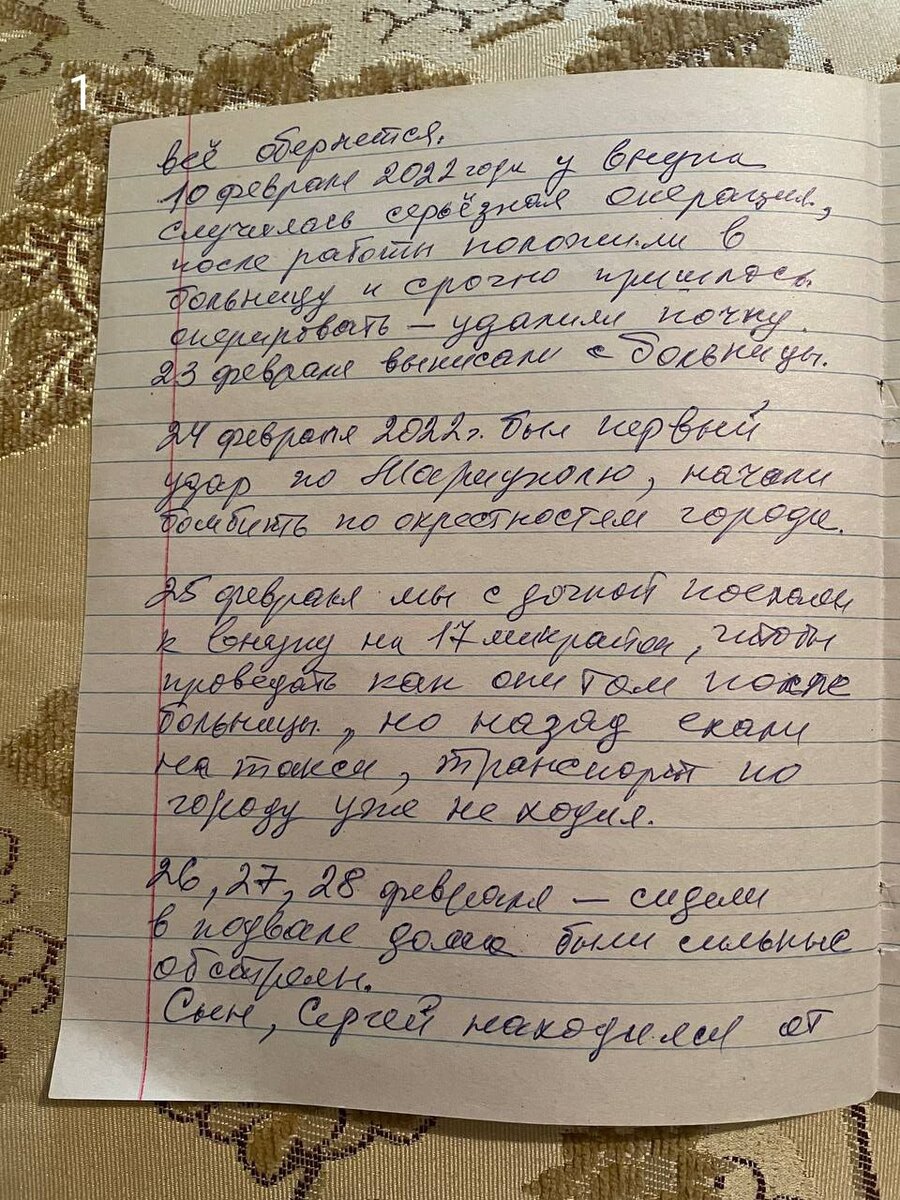 1
всё обернется.
10 февраля 2022 года у внука
случилась серьёзная операция,
после работы положили в
больницу и срочно пришлось
оперировать – удалили почку.
23 февраля выписали с больницы.
24 февраля 2022г. был первый
удар по Мариуполю, начали
бомбить по окрестностям города.
25 февраля мы с дочкой поехали
к внуку на 17 микрайон, чтобы
проведать как они там после
больницы, но назад ехали
на такси, транспорт по
городу уже не ходил.
26, 27, 28 февраля – сидели
в подвале дома были сильные
обстрелы.
Сын, Сергей находился от